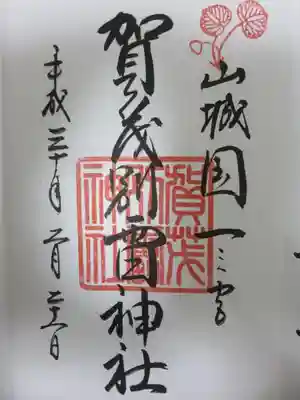 山城国一之宮
賀茂別雷神社
平成三十年二月日
賀茂
神社